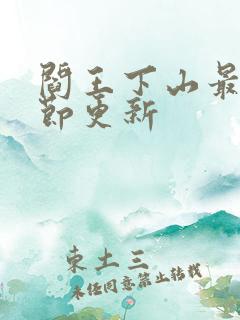 閻王下山最
節更新
東土三
未經同意禁止轉載